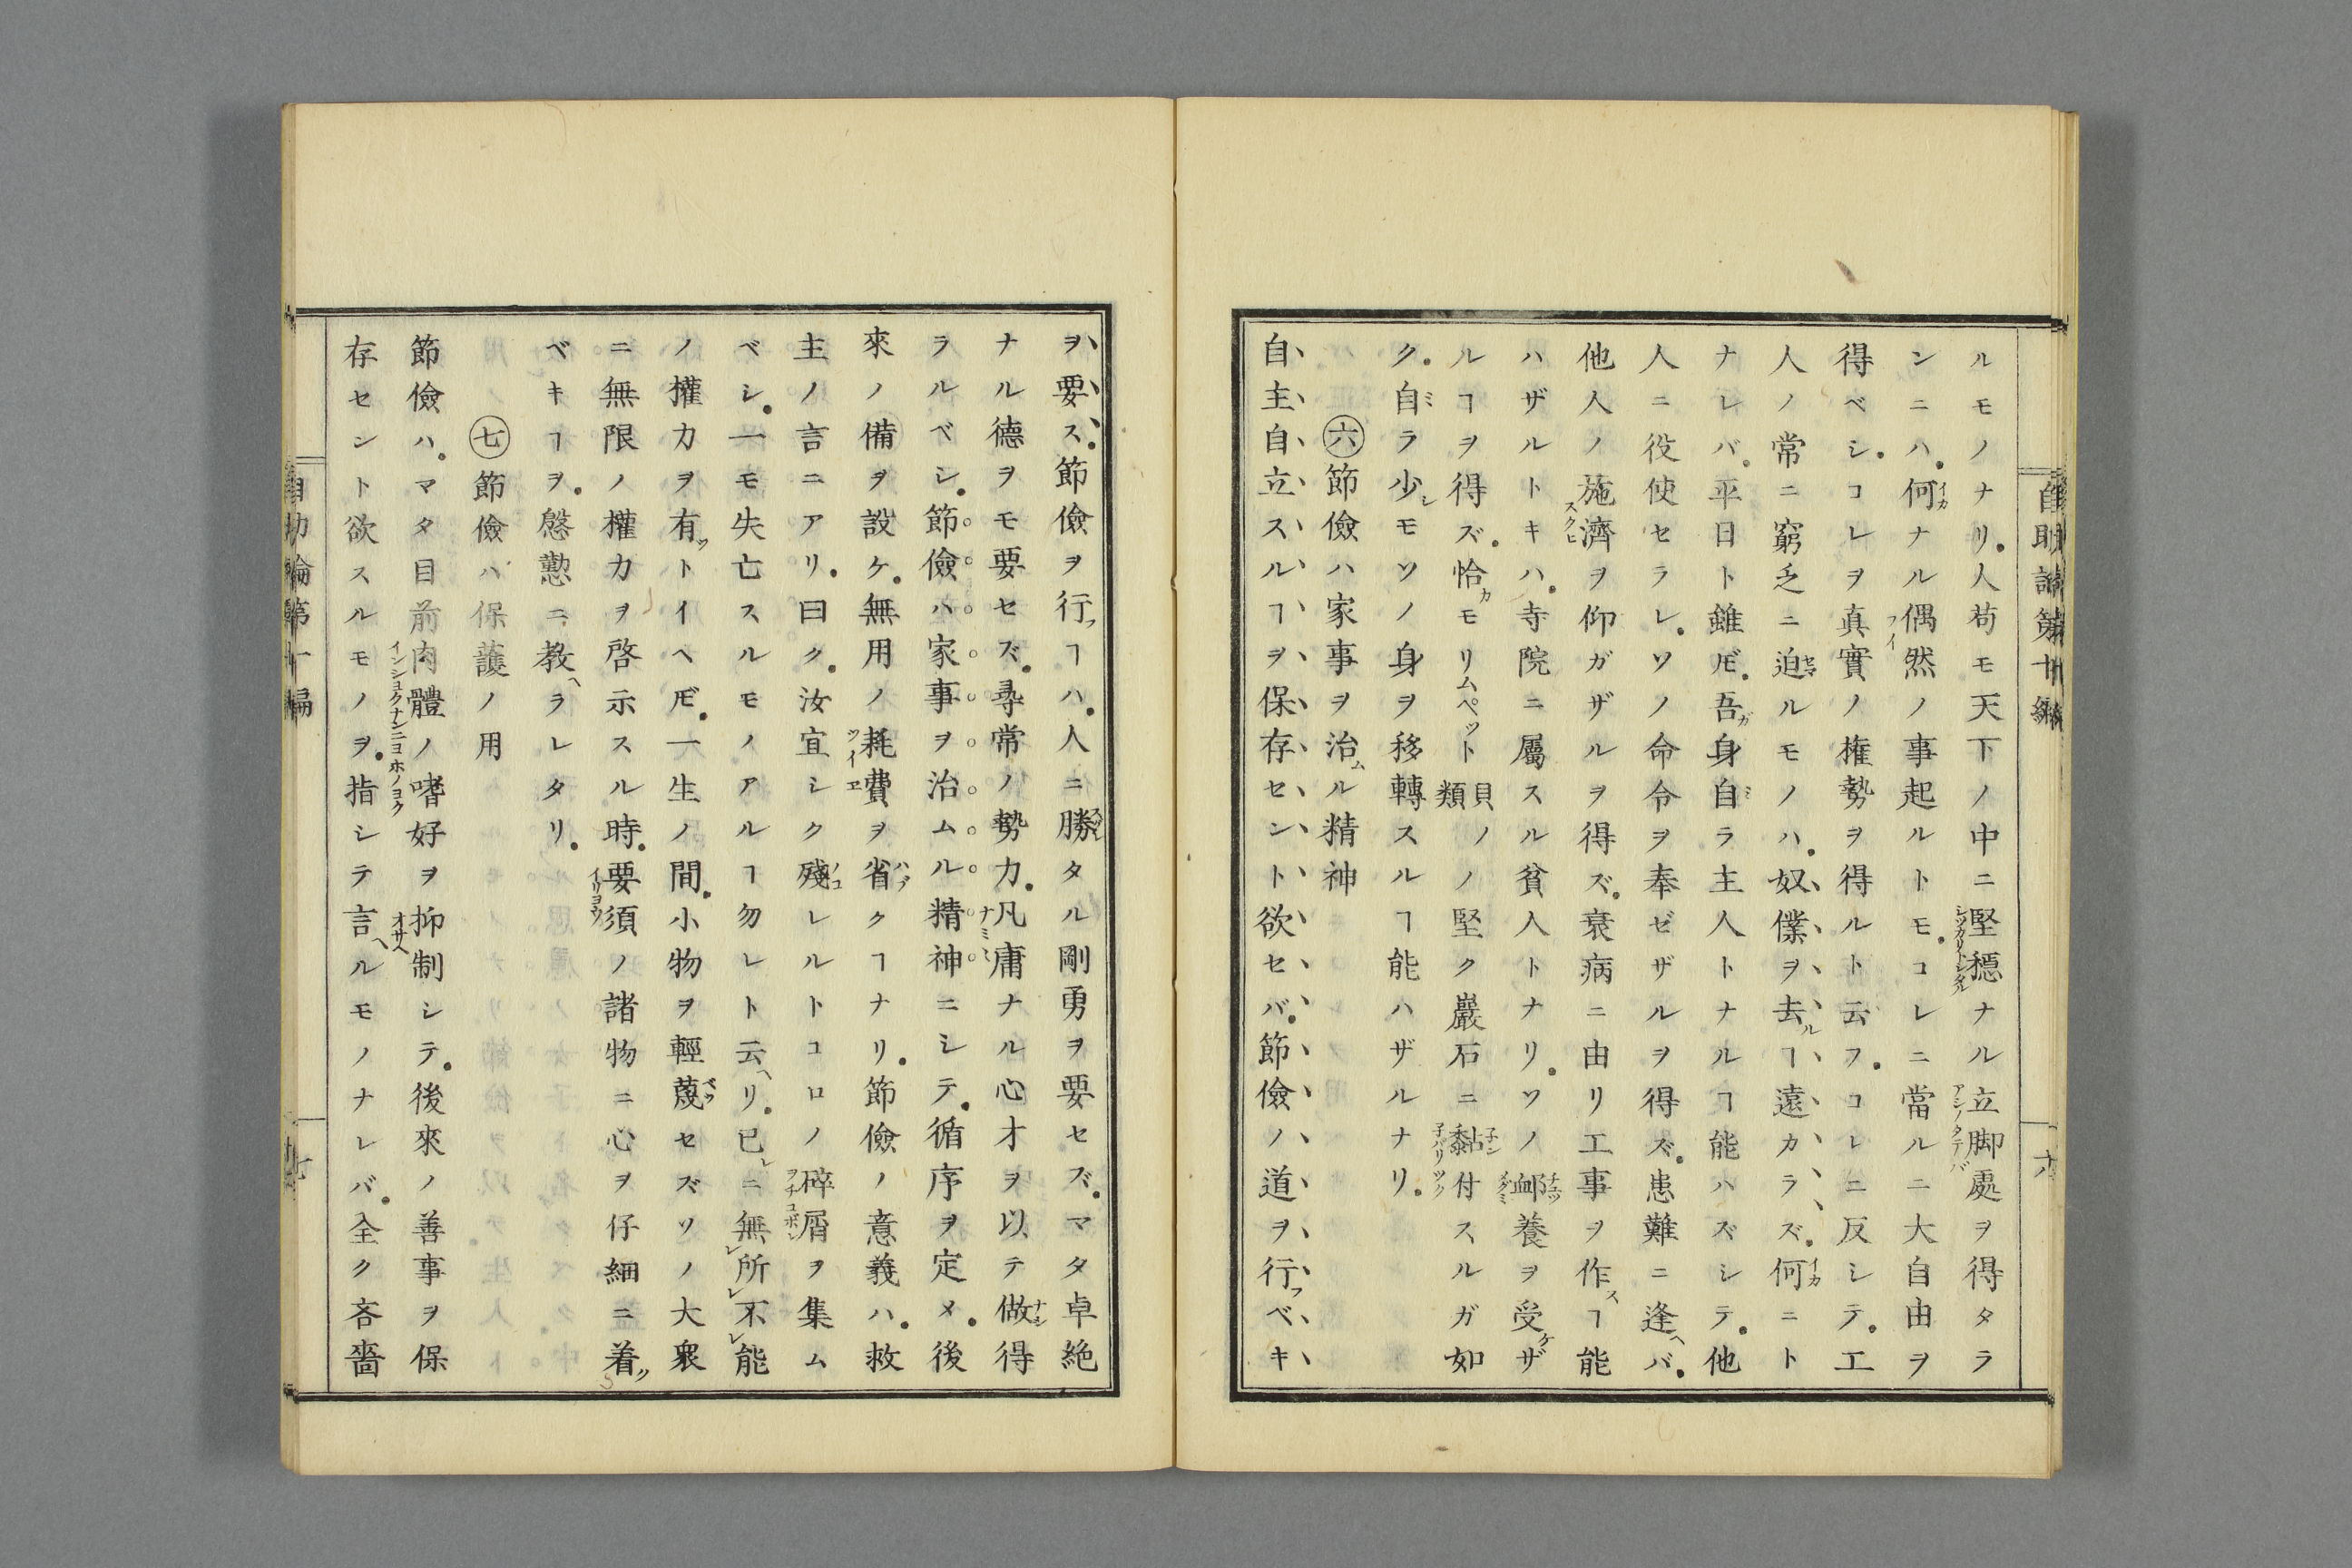 自助論第十編
六
ルモノナリ。人苟モ天下ノ中ニ堅穩ナル立脚處ヲ得タラ
ンニハ。何ナル偶然ノ事起ルトモ。コレニ當ルニ大自由ヲ
得ベシ。コレヲ真實ノ権勢ヲ得ルト云フ。コレニ反シテ。工
人ノ常ニ窮乏ニ迫ルモノハ。奴僕ヲ去ルヿ遠カラズ。何ニト
ナレバ。平日ト雖𪜈。吾身自ラ主人トナルヿ能ハズシテ。他
人ニ役使セラレ。ソノ命令ヲ奉ゼザルヲ得ズ。患難ニ逢ヘバ。
他人ノ施濟ヲ仰ガザルヲ得ズ。衰病ニ由リ工事ヲ作スヿ能
ハザルトキハ。寺院ニ屬スル貧人トナリ。ソノ䘏養ヲ受ケザ
ルヿヲ得ズ。恰カモリムペット貝類ノノ堅ク巖石ニ黏付スルガ如
ク。自ラ少シモソノ身ヲ移轉スルヿ能ハザルナリ。
㊅節儉ハ家事ヲ治ムル精神
自主自立スルヿヲ保存セント欲セバ。節儉ノ道ヲ行フベキ
ヲ要ス。節儉ヲ行フヿハ。人ニ勝タル剛勇ヲ要セズ。マタ卓絶
ナル德ヲモ要セズ。尋常ノ勢力。凡庸ナル心才ヲ以テ做得
ラルベシ。節儉ハ家事ヲ治ムル精神ニシテ。循序ヲ定メ。後
來ノ備ヲ設ケ。無用ノ耗費ヲ省クヿナリ。節儉ノ意義ハ。救
主ノ言ニアリ。曰ク。汝宜シク殘レルトコロノ碎屑ヲ集ム
ベシ。一モ失亡スルモノアルヿ勿レト云ヘリ。已レニ無所不能
ノ權力ヲ有ツトイヘ𪜈。一生ノ間。小物ヲ輕蔑セズソノ大衆
ニ無限ノ權力ヲ啓示スル時。要須ノ諸物ニ心ヲ仔細ニ着ツ
ベキヿヲ。慇懃ニ教ヘラレタリ。
㊆節儉ハ保護ノ用
節儉ハ。マタ目前肉體ノ嗜好ヲ抑制シテ。後來ノ善事ヲ保
存セント欲スルモノヲ。指シテ言ヘルモノナレバ。全ク吝嗇
自助論第十一編
七